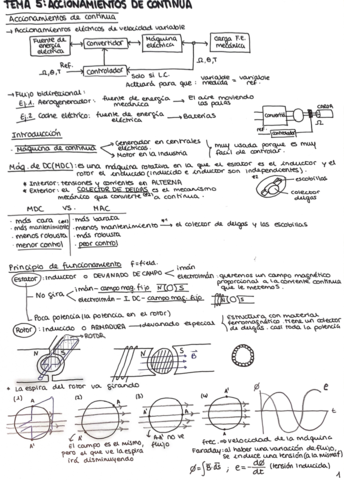 TEMA 5: ACCIONAMIENTOS DE CONTINUA
Accionamientos de continua
→ Accionamientos eléctricos de velocidad variable
Fuente de energía eléctrica
Convertidor
Máquina eléctrica
Carga P.E. mecánica
Ω,θ,T
Ref.
Ω,θ,T
Controlador
Solo si L.C.
Actuará para que: variable medida = variable ref.
→ Flujo bidireccional:
Ej.1. Aerogenerador: fuente de energía mecánica → El aire moviendo las palas
Ej.2. Coche eléctrico: fuente de energía eléctrica → Baterías
Convertidor
CARGA
ref
controlador
Ω
Introducción
- Máquina de continua
Generador en centrales eléctricas
Motor en la industria
muy usada porque es muy fácil de controlar.
Máq. de DC(MDC): es una máquina rotativa en la que el estator es el inductor y el
rotor el inducido (inductor e inducido son independientes).
* Interior: tensiones y corrientes en ALTERNA
* Exterior: el COLECTOR DE DELGAS es el mecanismo
mecánico que convierte a continua.
escobillas
colector delgas
MDC VS. MAC
- más cara - más barata
- más mantenimiento - menos mantenimiento → el colector de delgas y las escobillas
- menos robusta - más robusta
- menor control - peor control
Principio de funcionamiento F=field.
Estator: inductor o DEVANADO DE CAMPO
imán
electroimán: queremos un campo magnético
proporcional a la corriente continua
que le metemos.
No gira
imán - campo mag. fijo N|O|S
electroimán - I DC - campo mag. fijo N|O|S
Poca potencia (la potencia en el rotor)
Rotor: inducido o ARMADURA → devanado especial
Estructura con material
ferromagnético tiene un colector
de delgas. casi toda la potencia
ROTOR
N
S
N
S
B
* La espira del rotor va girando
(1)
(2)
(3)
(4)
A
A'
El campo es el mismo,
pero el que ve la espira
irá disminuyendo
A-A' no ve
flujo
ϕ
e
t
Frec. ⇒ velocidad de la máquina
Faraday: al haber una variación de flujo,
se induce una tensión (a la misma f)
ϕ=∫B ds ; e=-dϕ/dt (tensión inducida)
1